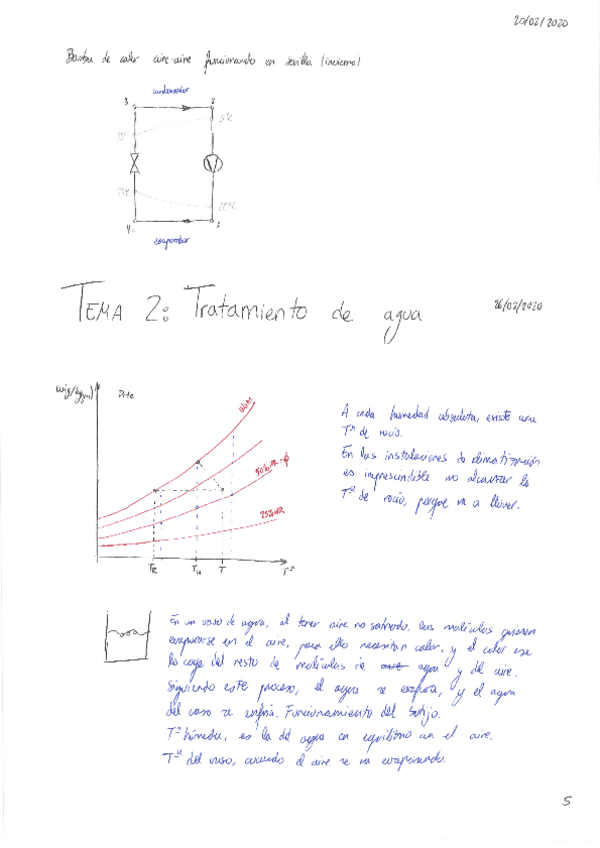 20/02/2020
Bomba de calor aire-aire funcionando en Sevilla (invierno)
condensador
3
2
5ºC
20ºC
4
1
evaporador
TEMA 2: Tratamiento de agua
26/02/2020
100%HR
50%HR=ϕ
25%HR
TR
TH
T
Tª
A cada humedad absoluta, existe una
Tª de rocío.
En las instalaciones de climatización
es imprescindible no alcanzar la
Tª de rocío, porque va a llover.
En un vaso de agua, al tener aire no saturado, las moléculas quieren
evaporarse en el aire, para ello necesitan calor, y el calor ese
lo coge del resto de moléculas de agua y del aire.
Siguiendo este proceso, el agua se evapora, y el agua
del vaso se enfría. Funcionamiento del botijo.
Tª húmeda, es la del agua en equilibrio con el aire.
Tª del vaso, cuando el aire se va evaporando.
5